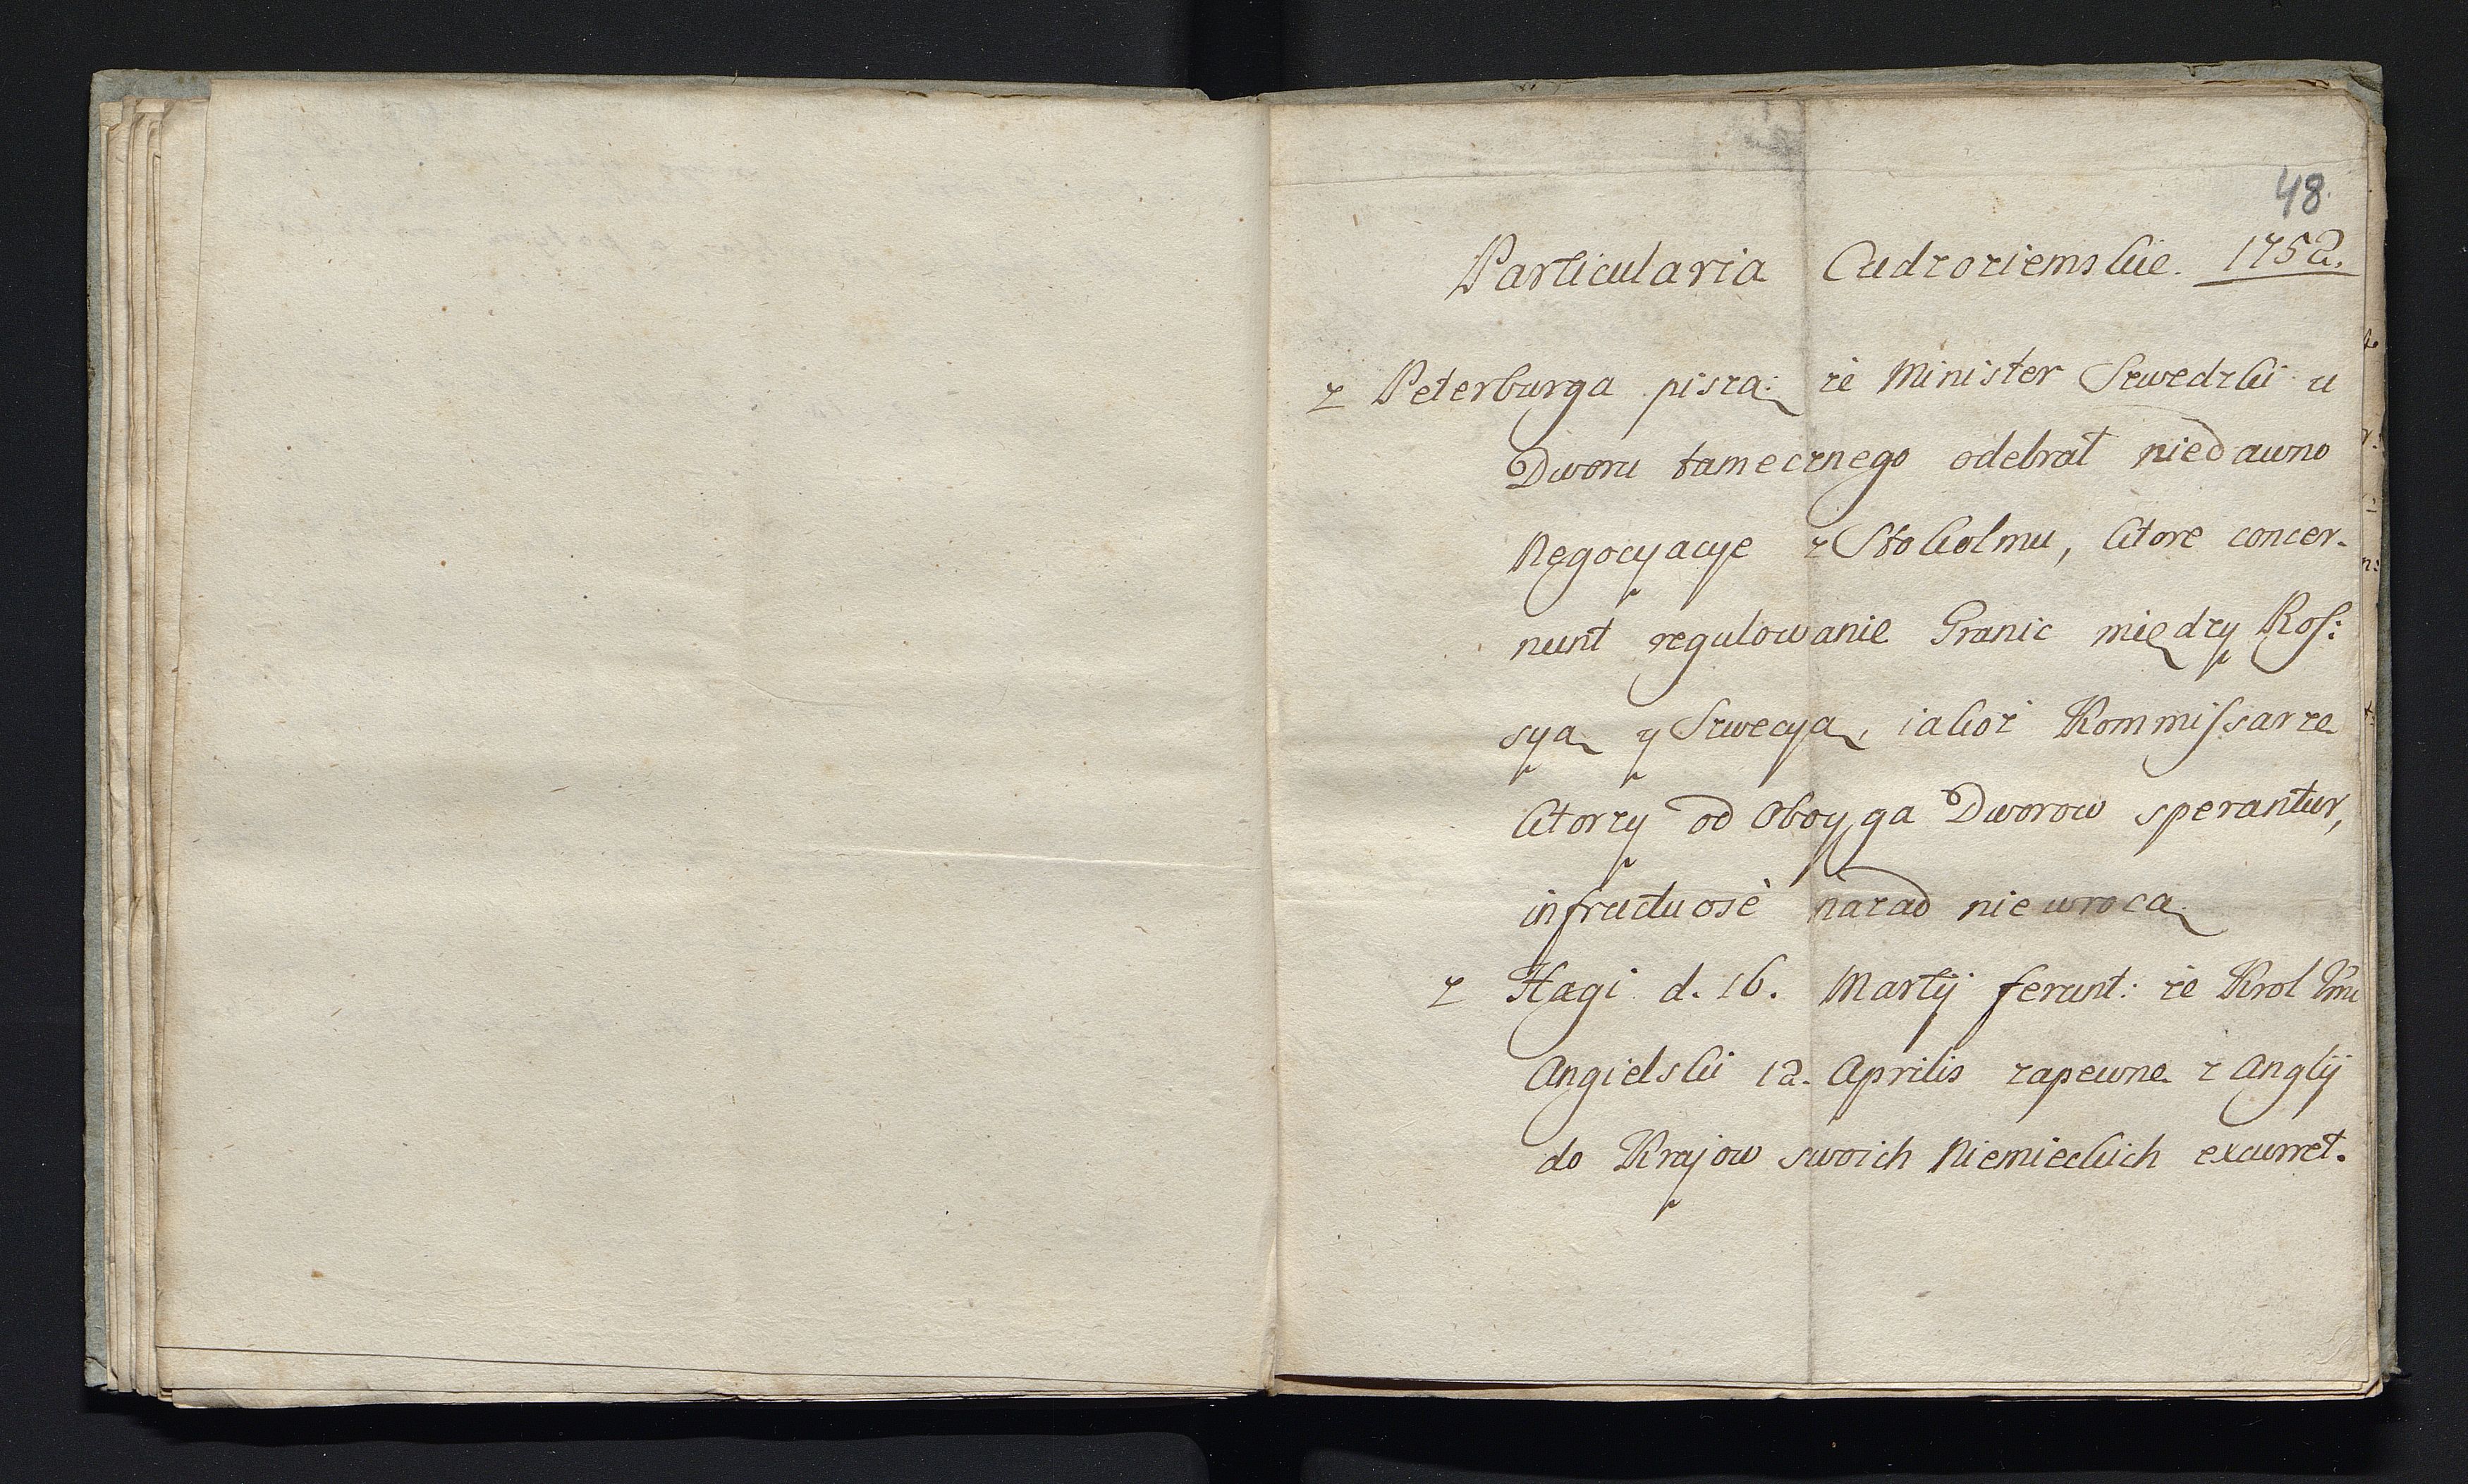 48.
Particularia Cudzoziemskie. 1752.
z Peterburga piszą: że Minister Szwedzki u
Dworu tamecznego odebrał niedawno
Negocyacye z Stokolmu, ktore concer-
nunt regulowanie Granic między Ros:
syą y Szwecyą, iakoż Kommissarze
ktorzy od Oboyga Dworow sperantur,
infructuosè nazad nie wrocą
z Hagi d. 16. Martij ferunt: że Krol Jmć
Angielski 12. Aprilis zapewne z Anglij
do Krajow swoich Niemieckich excurret.